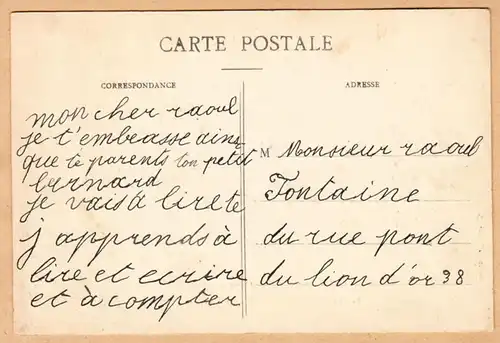 CARTE POSTALE
CORRESPONDANCE
mon cher raoul
je t'embrasse ainsi
que te parents ton petit
bernard
je vais à lirete
j apprends à
lire et ecrire
et à compter
ADRESSE
M Monsieur raoul
Fontaine
du rue pont
du lion d'or 38